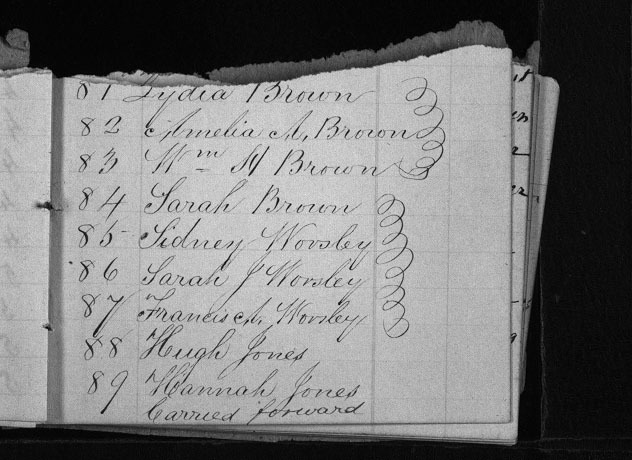 81 Lydia Brown
82 Amelia A. Brown
83 Wm H Brown
84 Sarah Brown
85 Sidney Worsley
86 Sarah J Worsley
87 Francis A. Worsley
88 Hugh Jones
89 Hannah Jones
Carried forward